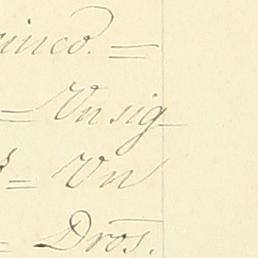 uinco. =
= Un sig
= Un
= Dros.